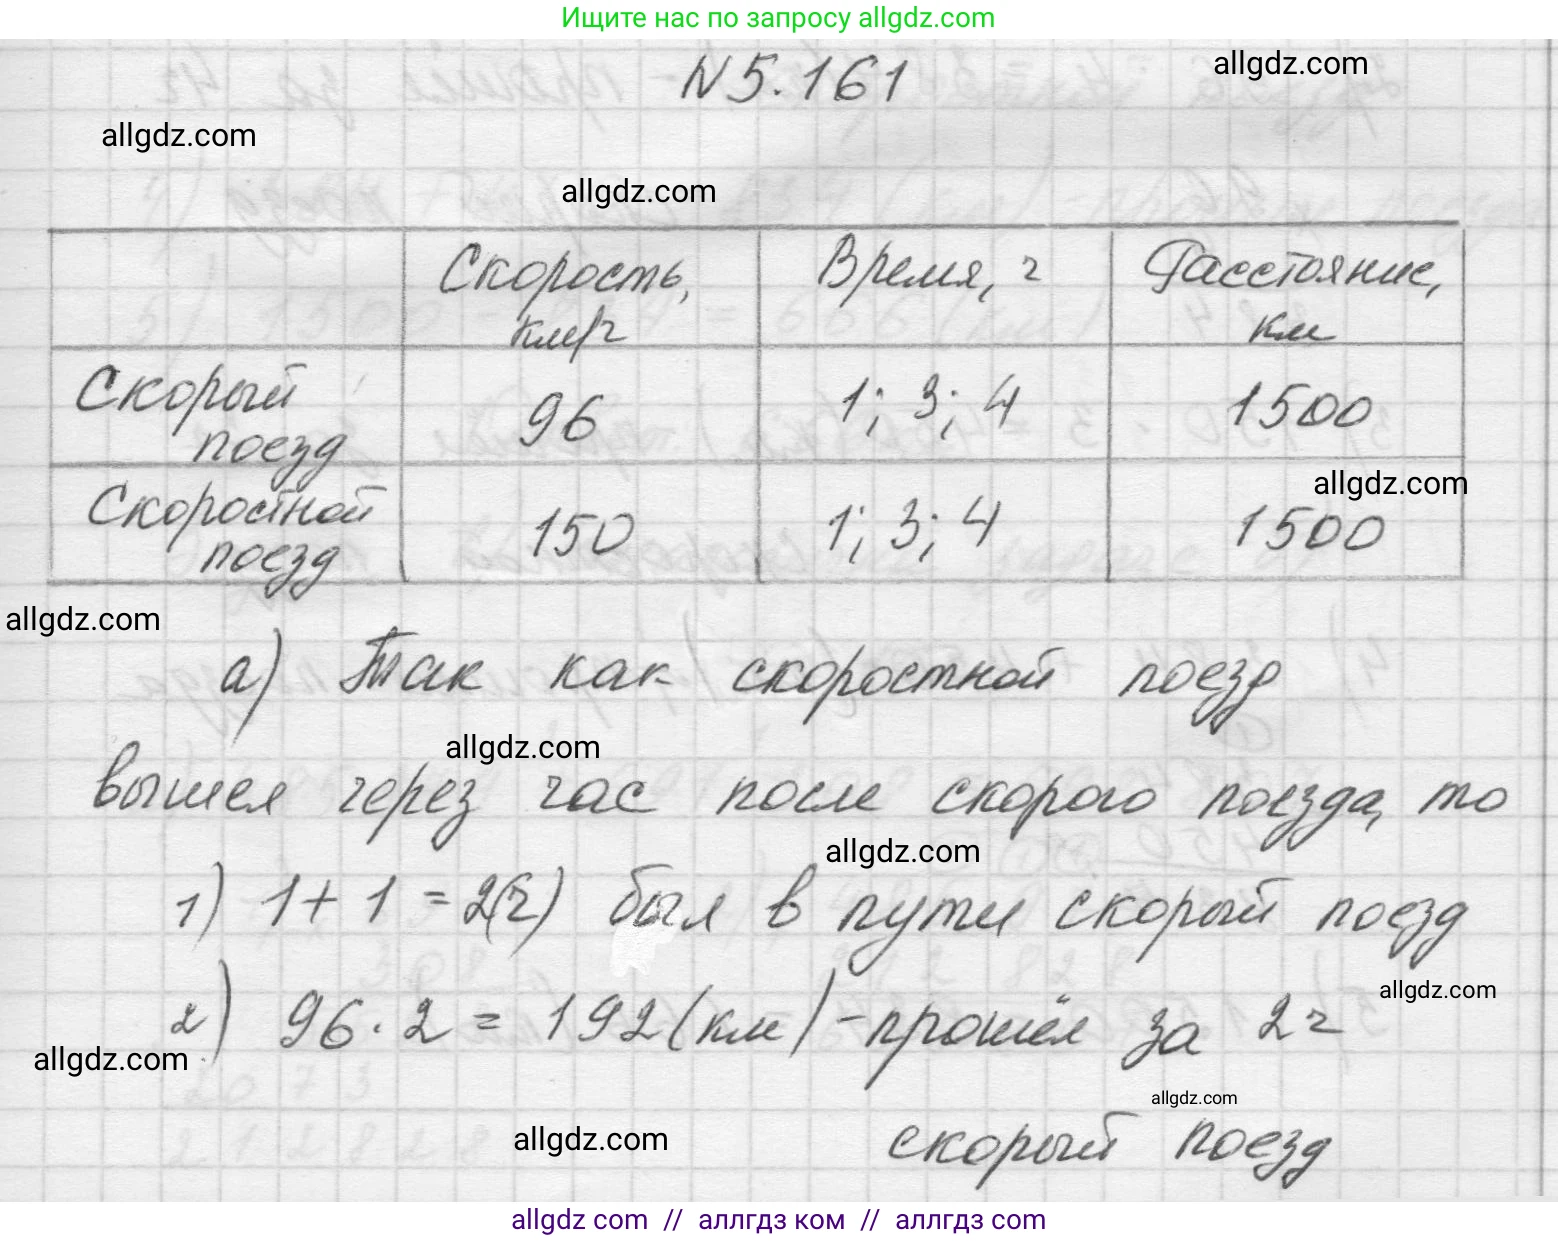 Ищите нас по запросу allgdz.com
N 5.161
allgdz.com
allgdz.com
allgdz.com
Скорость, км/ч
Время, ч
Расстояние, км
Скорый поезд
96
1; 3; 4
1500
Скоростной поезд
150
1; 3; 4
1500
allgdz.com
allgdz.com
а) Так как скоростной поезд
allgdz.com
вышел через час после скорого поезда, то
allgdz.com
1) 1 + 1 = 2(ч) был в пути скорый поезд
allgdz.com
2) 96 · 2 = 192 (км) - прошёл за 2 ч
allgdz.com
allgdz.com
allgdz.com
скорый поезд
allgdz com // аллгдз ком // аллгдз com